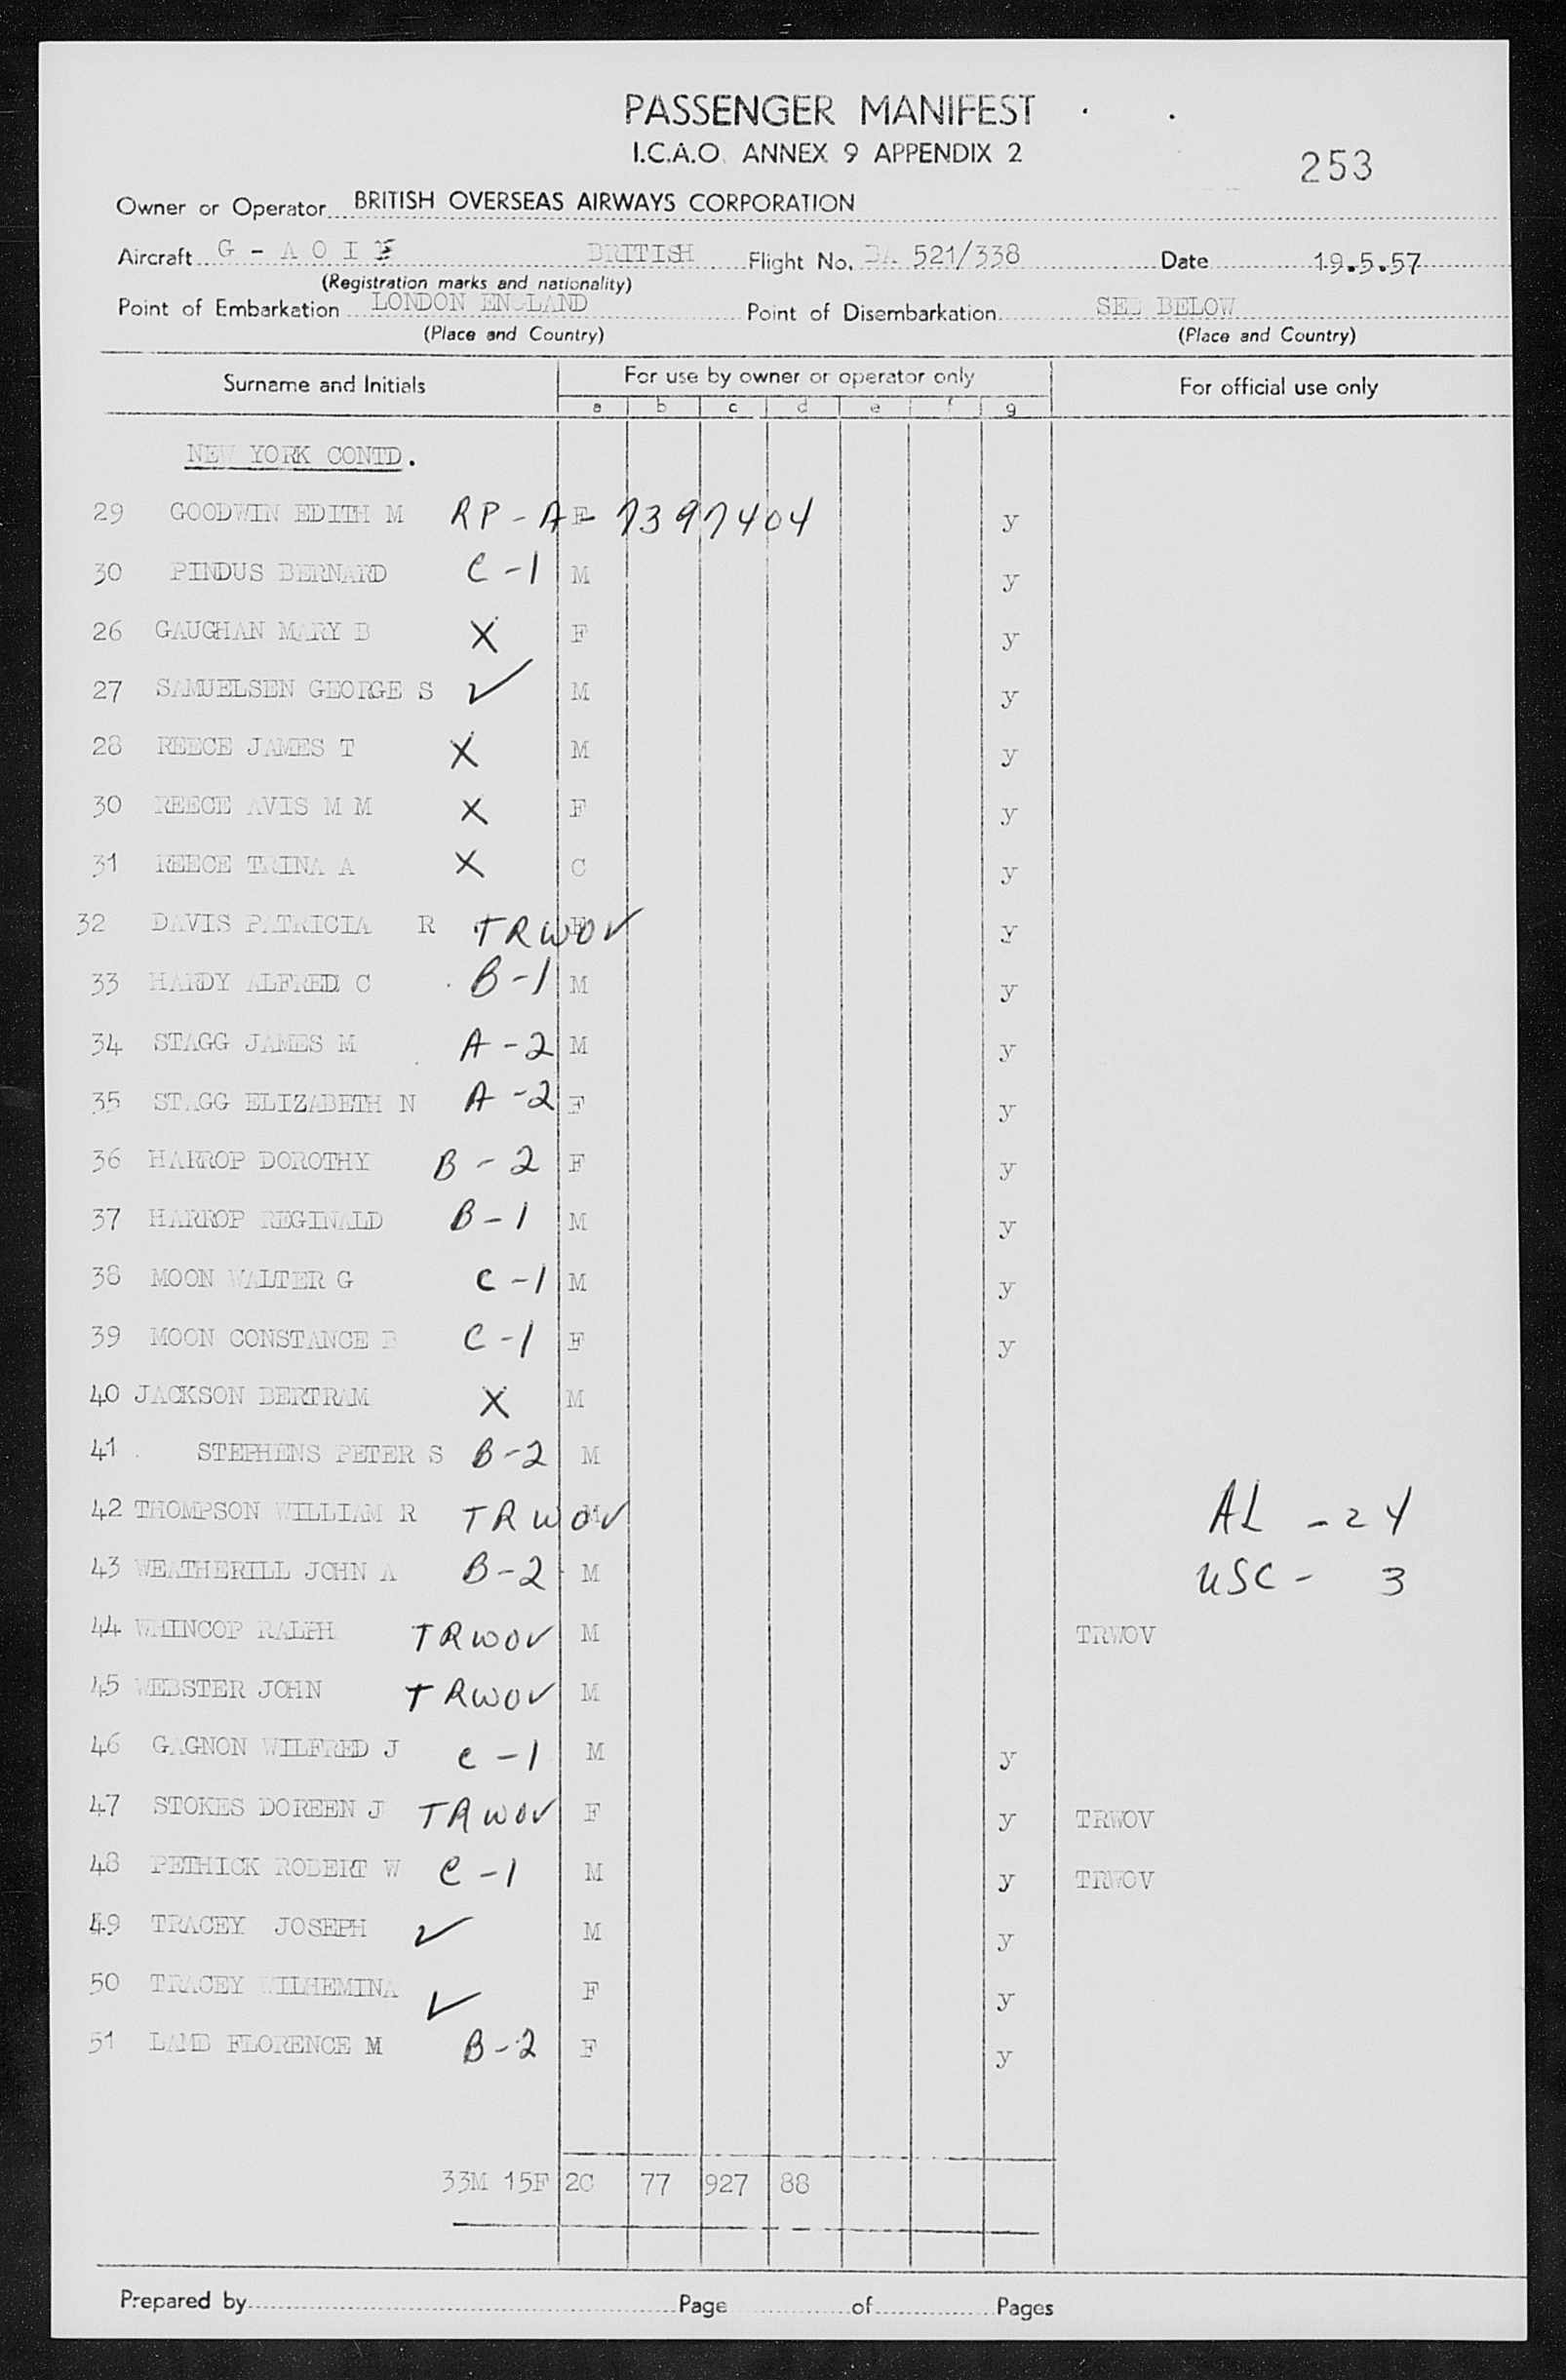 PASSENGER MANIFEST
I.C.A.O. ANNEX 9 APPENDIX 2
253
Owner or Operator BRITISH OVERSEAS AIRWAYS CORPORATION
Aircraft G - A O I BRITISH Flight No. BA 521/338 Date 19.5.57
(Registration marks and nationality)
Point of Embarkation LONDON ENGLAND Point of Disembarkation SEE BELOW
(Place and Country) (Place and Country)
Surname and Initials For use by owner or operator only For official use only
a b c d e f g
NEW YORK CONTD.
29 GOODWIN EDITH M RP-A- F 7397404 y
30 PINDUS BERNARD C-1 M y
26 GAUGHAN MARY B X F y
27 SAMUELSEN GEORGE S ✓ M y
28 REECE JAMES T X M y
30 REECE AVIS M M X F y
31 REECE TRINA A X C y
32 DAVIS PATRICIA R TRWOV F y
33 HARDY ALFRED C B-1 M y
34 STAGG JAMES M A-2 M y
35 STAGG ELIZABETH N A-2 F y
36 HARROP DOROTHY B-2 F y
37 HARROP REGINALD B-1 M y
38 MOON WALTER G C-1 M y
39 MOON CONSTANCE B C-1 F y
40 JACKSON BERTRAM X M
41 STEPHENS PETER S B-2 M
42 THOMPSON WILLIAM R TRWOV M AL - 24
43 WEATHERILL JOHN A B-2 M USC - 3
44 WHINCOP RALPH TRWOV M TRWOV
45 WEBSTER JOHN TRWOV M
46 GAGNON WILFRED J C-1 M y
47 STOKES DOREEN J TRWOV F y TRWOV
48 PETHICK ROBERT W C-1 M y TRWOV
49 TRACEY JOSEPH ✓ M y
50 TRACEY WILHEMINA ✓ F y
51 LAMB FLORENCE M B-2 F y
33M 15F 2C 77 927 88
Prepared by Page of Pages